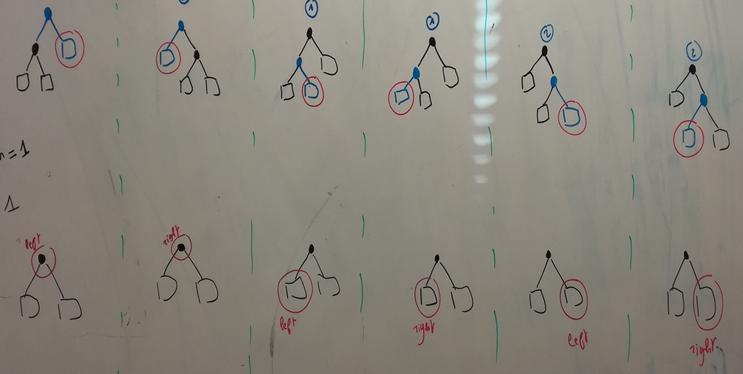 1
1
2
2
n=1
1
left
right
left
right
left
right